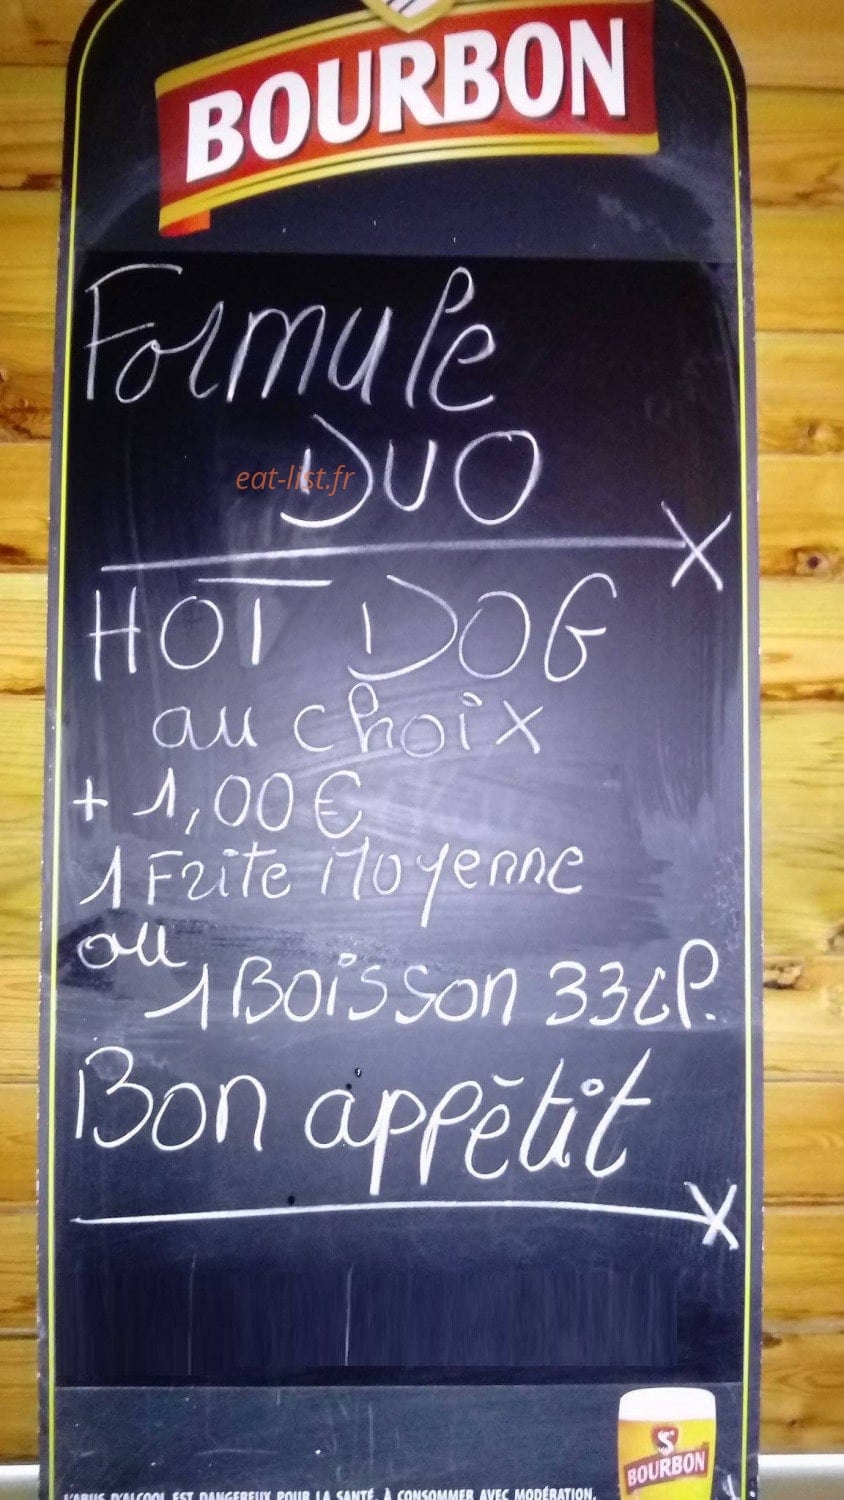 BOURBON
Formule
DUO
eat-list.fr
HOT DOG
au choix
+ 1,00€
1 Frite Moyenne
ou
1 Boisson 33cl.
Bon appétit
BOURBON
L'ABUS D'ALCOOL EST DANGEREUX POUR LA SANTÉ, À CONSOMMER AVEC MODÉRATION.